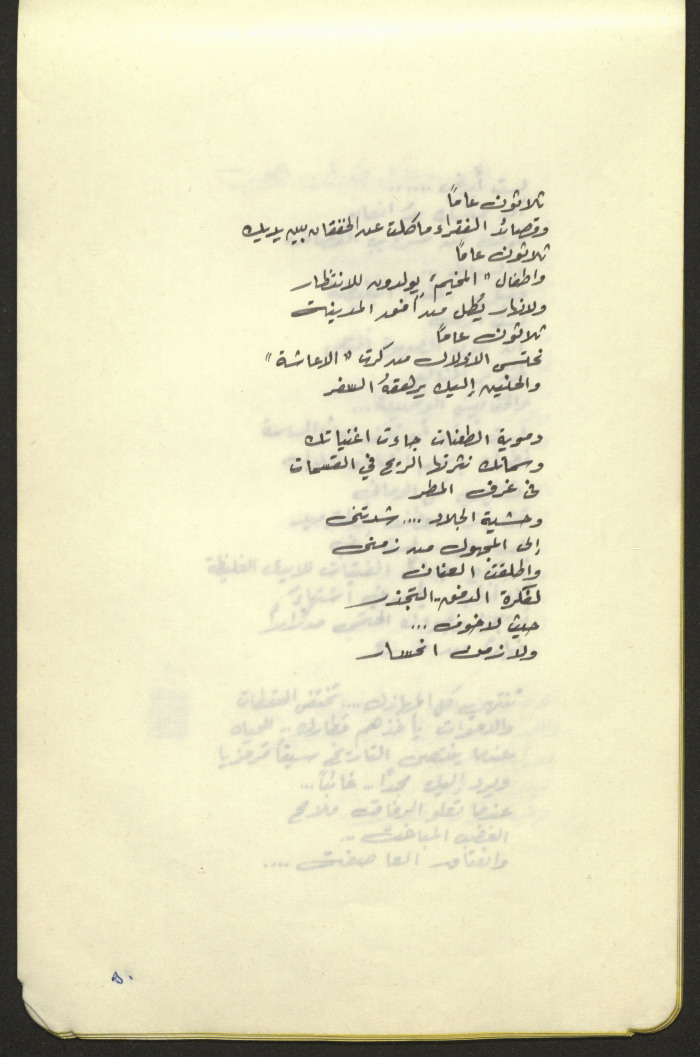 ثلاثون عاماً
وقصائد الفقراء ما كلت عن الخفقان بين يديك
ثلاثون عاماً
واطفال "المخيم" يولدون للانتظار
ولا نهار يُطل من أفق المدينة
ثلاثون عاماً
نحتسي الاذلال من كرت "الاعاشة"
والحنين إليك يرهقهُ السفر
دموية الطعنات جاءت اغنياتك
وسمائك نثرتها الريح في القسمات
في غرف المطر
وحشية الجلاد .... شدتني
إلى المجهول من زمني
واطلقت العنان
لفكرة الدفق .. التجذر
حيث لا خوف ...
ولا زمن انحسار
٥٠